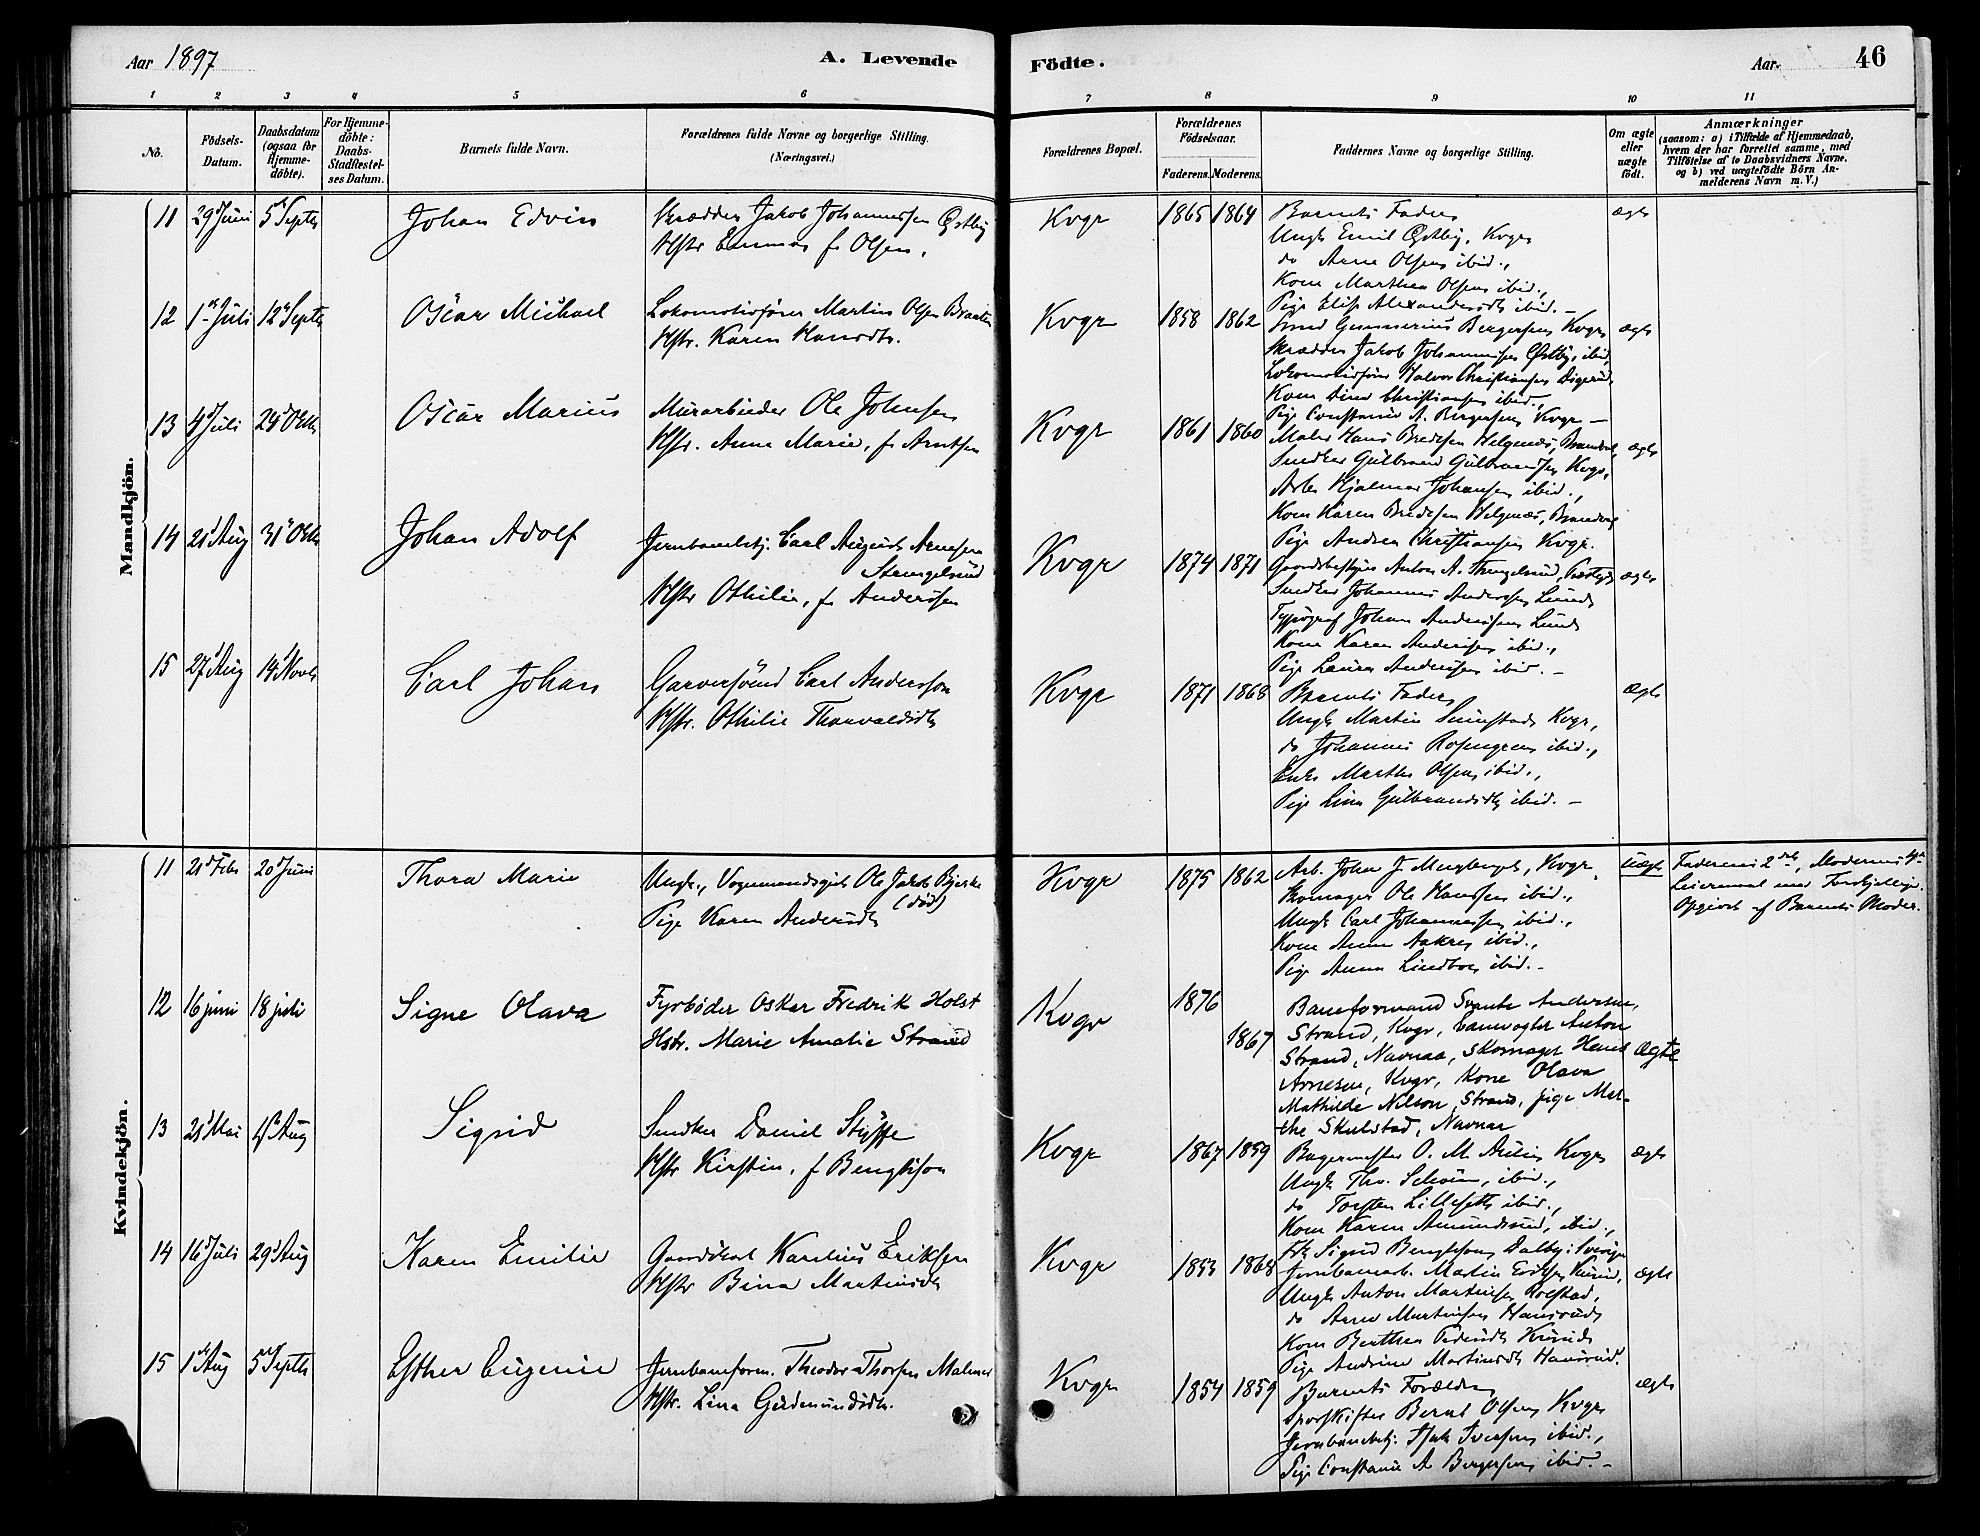 Aar 1897
A. Levende
Födte.
Aar
46
1 2 3 4 5 6 7 8 9 10 11
No.
Födsels-Datum.
Daabsdatum (ogsaa for Hjemme-döbte).
For Hjemme-döbte: Daabs-Stadfæstel-ses Datum.
Barnets fulde Navn.
Forældrenes fulde Navne og borgerlige Stilling. (Næringsvei.)
Forældrenes Bopæl.
Forældrenes Födselsaar.
Faderens. Moderens.
Faddernes Navne og borgerlige Stilling.
Om ægte eller uægte födt.
Anmærkninger
(saasom: a) i Tilfælde af Hjemmedaab,
hvem der har forrettet samme, med
Tilföielse af to Daabsvidners Navne.
og b) ved uægtefödte Börn An-
melderens Navn m.V.)
Mandkjön.
11 29 Juni 5 Septb Johan Edvin
Skrædder Jakob Johannessen Østby
Hstr Emma f. Olsen.
Kvgr 1865 1864
Barnets Fader
Ungk Emil Østby, Kvgr
do Arne Olsen ibid.,
Kone Marthea Olsen ibid.,
Pige Elise Alexandersdt ibid. –
ægte
12 1 Juli 12 Septb Oscar Michael
Lokomotivfører Martin Olsen Braaten
Hstr. Karen Hansdtr.
Kvgr 1858 1862
Smed Gunnerius Bergersen Kvgr
Skrædder Jakob Johannessen Østby, ibid,
Lokomotivfører Halvor Christiansen
Kone Christiansen ibid.,
Pige Constance A. Bergersen Kvgr –
ægte
13 4 Juli 24 Oktb Oscar Marius
Murarbeider Ole Johnsen
Hstr. Anna Marie, f. Arntsen
Kvgr 1861 1860
Maler Hans Bredesen Helgenæs, Brandval,
Snedker Gulbrand Gulbrandsen Kvgr,
Arb. Hjalmar Johansen ibid.,
Kone Karen Bredesen Helgenæs, Brandval
Pige Andrea Christiansen Kvgr.
ægte
14 21 Aug 31 Oktb Johan Adolf
Jernbanebetj. Carl August Arnesen
Strengelsrud
Hstr Othilie, f. Andersen
Kvgr 1874 1871
Gaardsbestyrer Anton A. Strengelsrud,
Snedker Johannes Andersen Lund
Typograf Johan Andersen Lund
Kone Karen Andersen ibid.,
Pige Laura Andersen ibid. –
ægte
15 27 Aug 14 Novb Carl Johan
Garversvend Carl Andersson
Hstr. Othilie Thorvaldsdt
Kvgr 1871 1868
Barnets Fader
Ungk Martin Kvgr,
do Johannes Rosengren ibid.,
Enke Marthe Olsen ibid.,
Pige Lina Gulbrandsdt ibid. –
ægte
Kvindekjön.
11 21 Febr 20 Juni Thora Marie
Ungk., Vognmandsgut Ole Jakob Bjerke
(død)
Pige Karen Andersdt
Kvgr 1875 1862
Arb. John J. Kvgr,
Skomager Ole Hanssen ibid.,
Ungk Carl Johannessen ibid.,
Kone Anna Aakre ibid.,
Pige Anna Lindboe ibid. –
Uægte
Faderens 2det, Moderens 4de
Leiermaal med Forskjellige.
Opgivet af Barnets Moder.
12 16 juni 18 juli Signe Olava
Fyrbøder Oskar Fredrik Holst
Hstr. Marie Amalie Strand
Kvgr 1876
1867
Baneformand Svante Andersen,
Strand, Kvgr, banevogter Anton
Strand, Navnaa, skomager Hans
Arnesen, Kvgr, Kone Olava
Mathilde Nilson Strand, pige Mar-
the Skulstad, Navnaa
ægte
13 21 Mai 1 Aug Sigrid
Snedker Daniel Styffe
Hstr Kirstin, f. Bengtsson
Kvgr 1867 1859
Bagermester O. M. Kvgr
Ungk Thv. ibid.,
do Torsten Lilleseth ibid.,
Kone Karen Amundsrud, ibid.,
Frk Sigrid Bengtsson, Dalby i Sverige
ægte
14 16 Juli 29 Aug Karen Emilie
Gaardskar Karelius Eriksen
Hstr Bina Martinsdt
Kvgr 1853 1868
Jernbanearb. Martin Eriksen
Ungk Anton Martinsen Rolstad,
do Arne Martinsen Hansrud
Kone Berthea Pedersdt
Pige Andrine Martinsdt Hansrud.
ægte
15 1 Aug 5 Septb Esther Eugenie
Jernbaneform. Theodor Thorsen Malmer
Hstr. Lina Gudmundsdt.
Kvgr 1854 1859
Barnets Forældre,
Sporskifter Bernt Olsen Kvgr
Jernbanebetj. Isak Iversen ibid.,
Pige Constance A Bergersen ibid. –
ægte